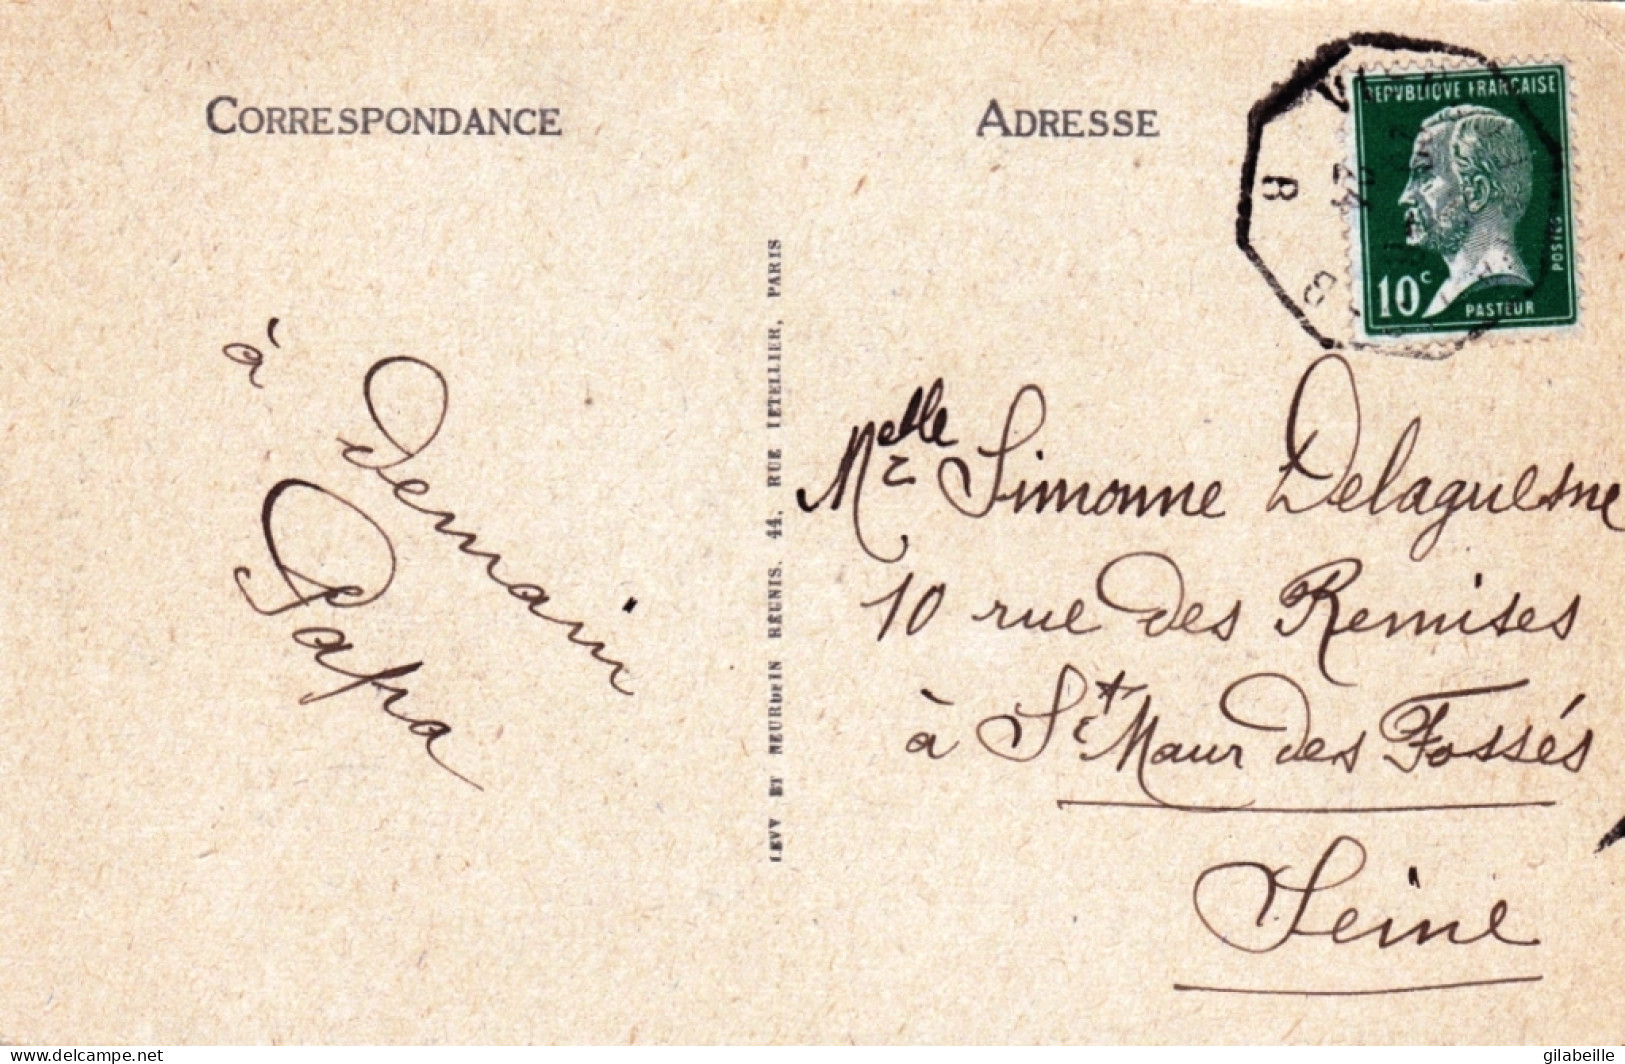 CORRESPONDANCE
ADRESSE
REPVBLIQVE FRANCAISE
POSTES
10c
PASTEUR
à
Demain
Papa
LEVY ET NEURDEIN RÉUNIS. 44, RUE LETELLIER, PARIS
Melle Simonne Delaguesne
10 rue des Remises
à St Maur des Fossés
Seine
www.delcampe.net
gilabeille